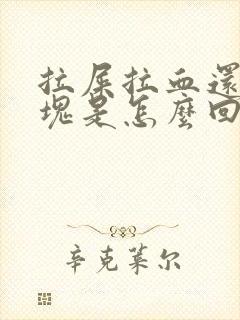 拉屎拉血還
塊是怎麼回
辛克萊尔